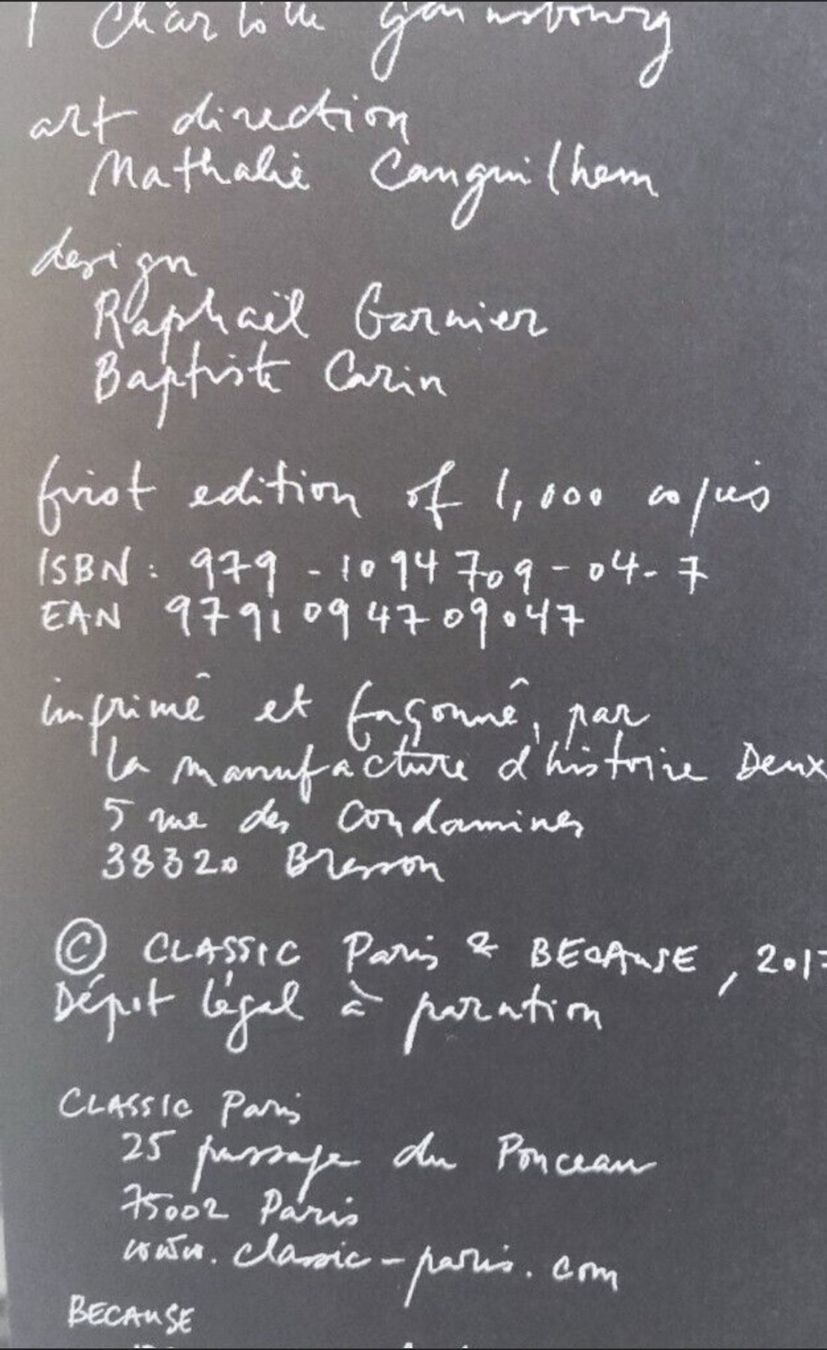 Charlotte Gainsbourg
art direction
Nathalie Canguilhem
design
Raphaël Garnier
Baptiste Carin
first edition of 1,000 copies
ISBN : 979 - 1094709 - 04 - 7
EAN 9791094709047
imprimé et façonné, par
la manufacture d'histoire Deux
5 rue des Condamines
38320 Bresson
© CLASSIC Paris & BECAUSE, 2017
Dépot légal à parution
CLASSIC Paris
25 passage du Ponceau
75002 Paris
www.classic-paris.com
BECAUSE